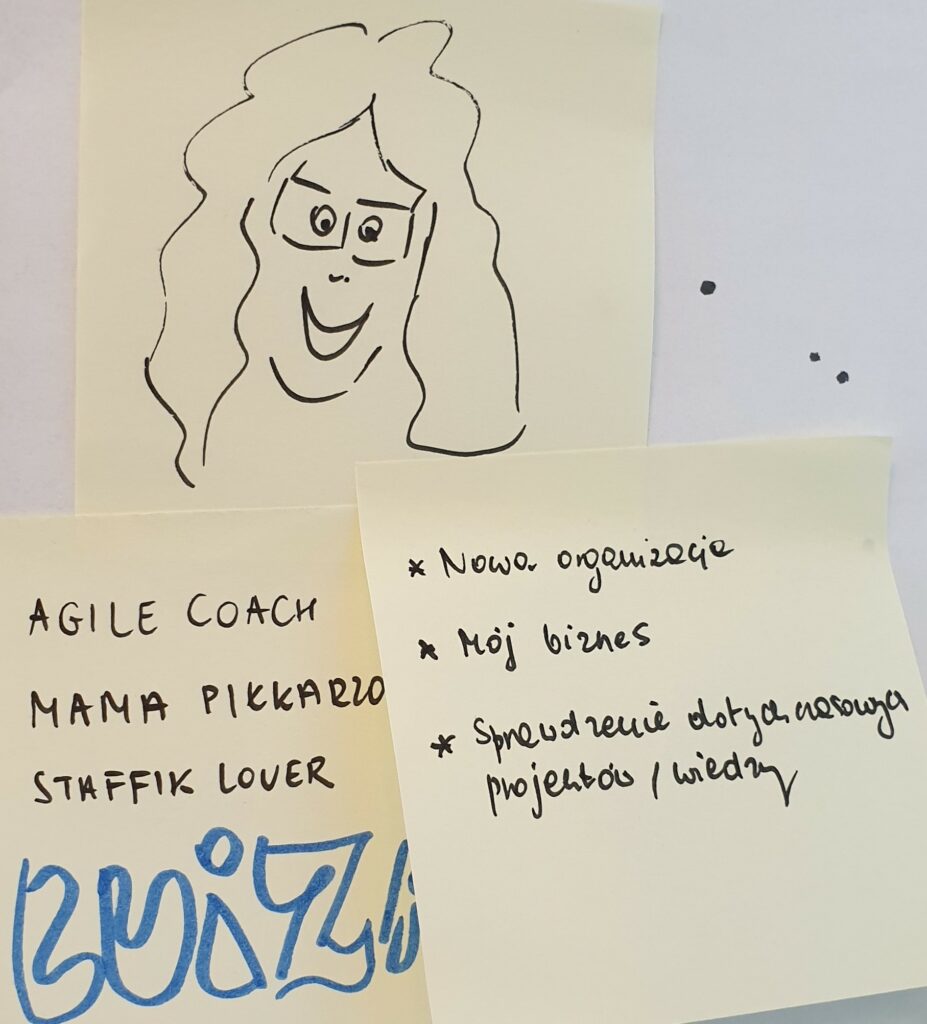 AGILE COACH
MAMA PIŁKARZO
STAFFIK LOVER
* Nowa organizacja
* Mój biznes
* Sprawdzenie dotychczasowych
projektów / wiedzy